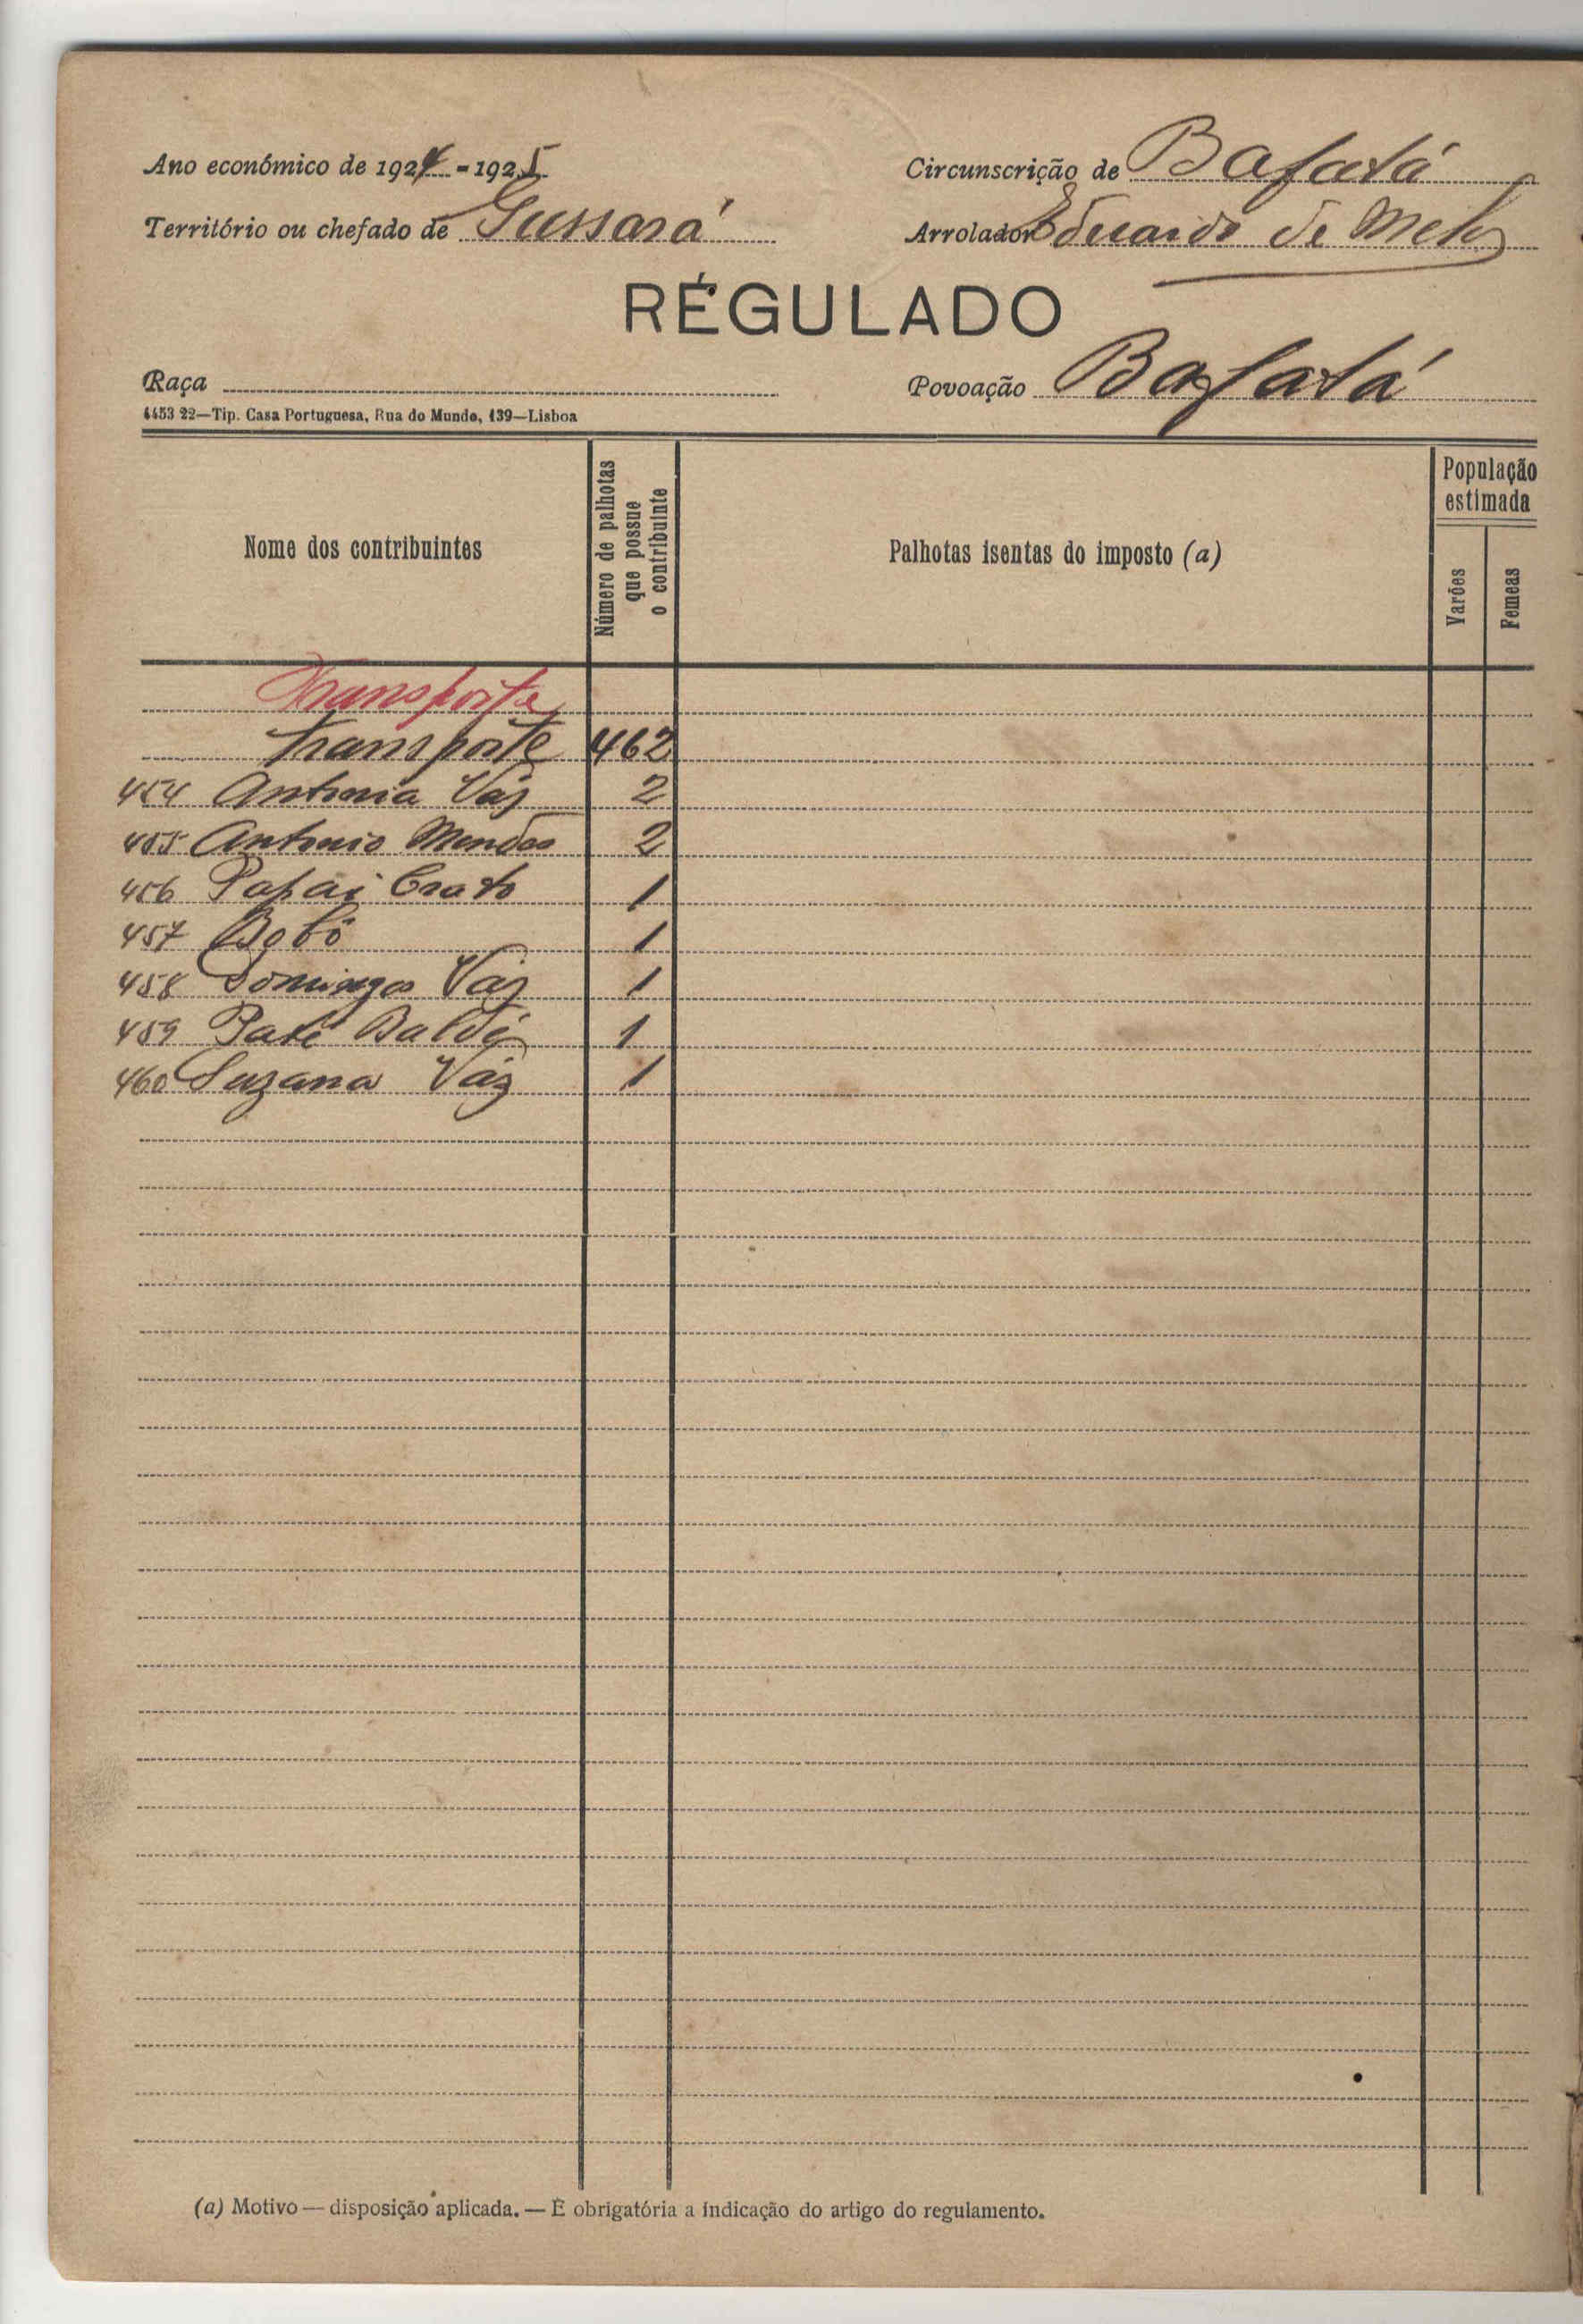 Ano económico de 1924 - 1925
Circunscrição de Bafatá
Território ou chefado de Gussará
Arrolador Eduardo de Melo
RÉGULADO
Raça
Povoação Bafatá
4453 22—Tip. Casa Portuguesa, Rua do Mundo, 139—Lisboa
Nome dos contribuintes
Número de palhotas
que possue
o contribuinte
Palhotas isentas do imposto (a)
População
estimada
Varões
Femeas
Transporte
Transporte 462
454 Antonia Váz 2
455 Antonio Mendes 2
456 Papai Crato 1
457 Bobô 1
458 Domingos Vaz 1
459 Paté Baldé 1
460 Suzana Váz 1
(a) Motivo — disposição aplicada. — É obrigatória a indicação do artigo do regulamento.